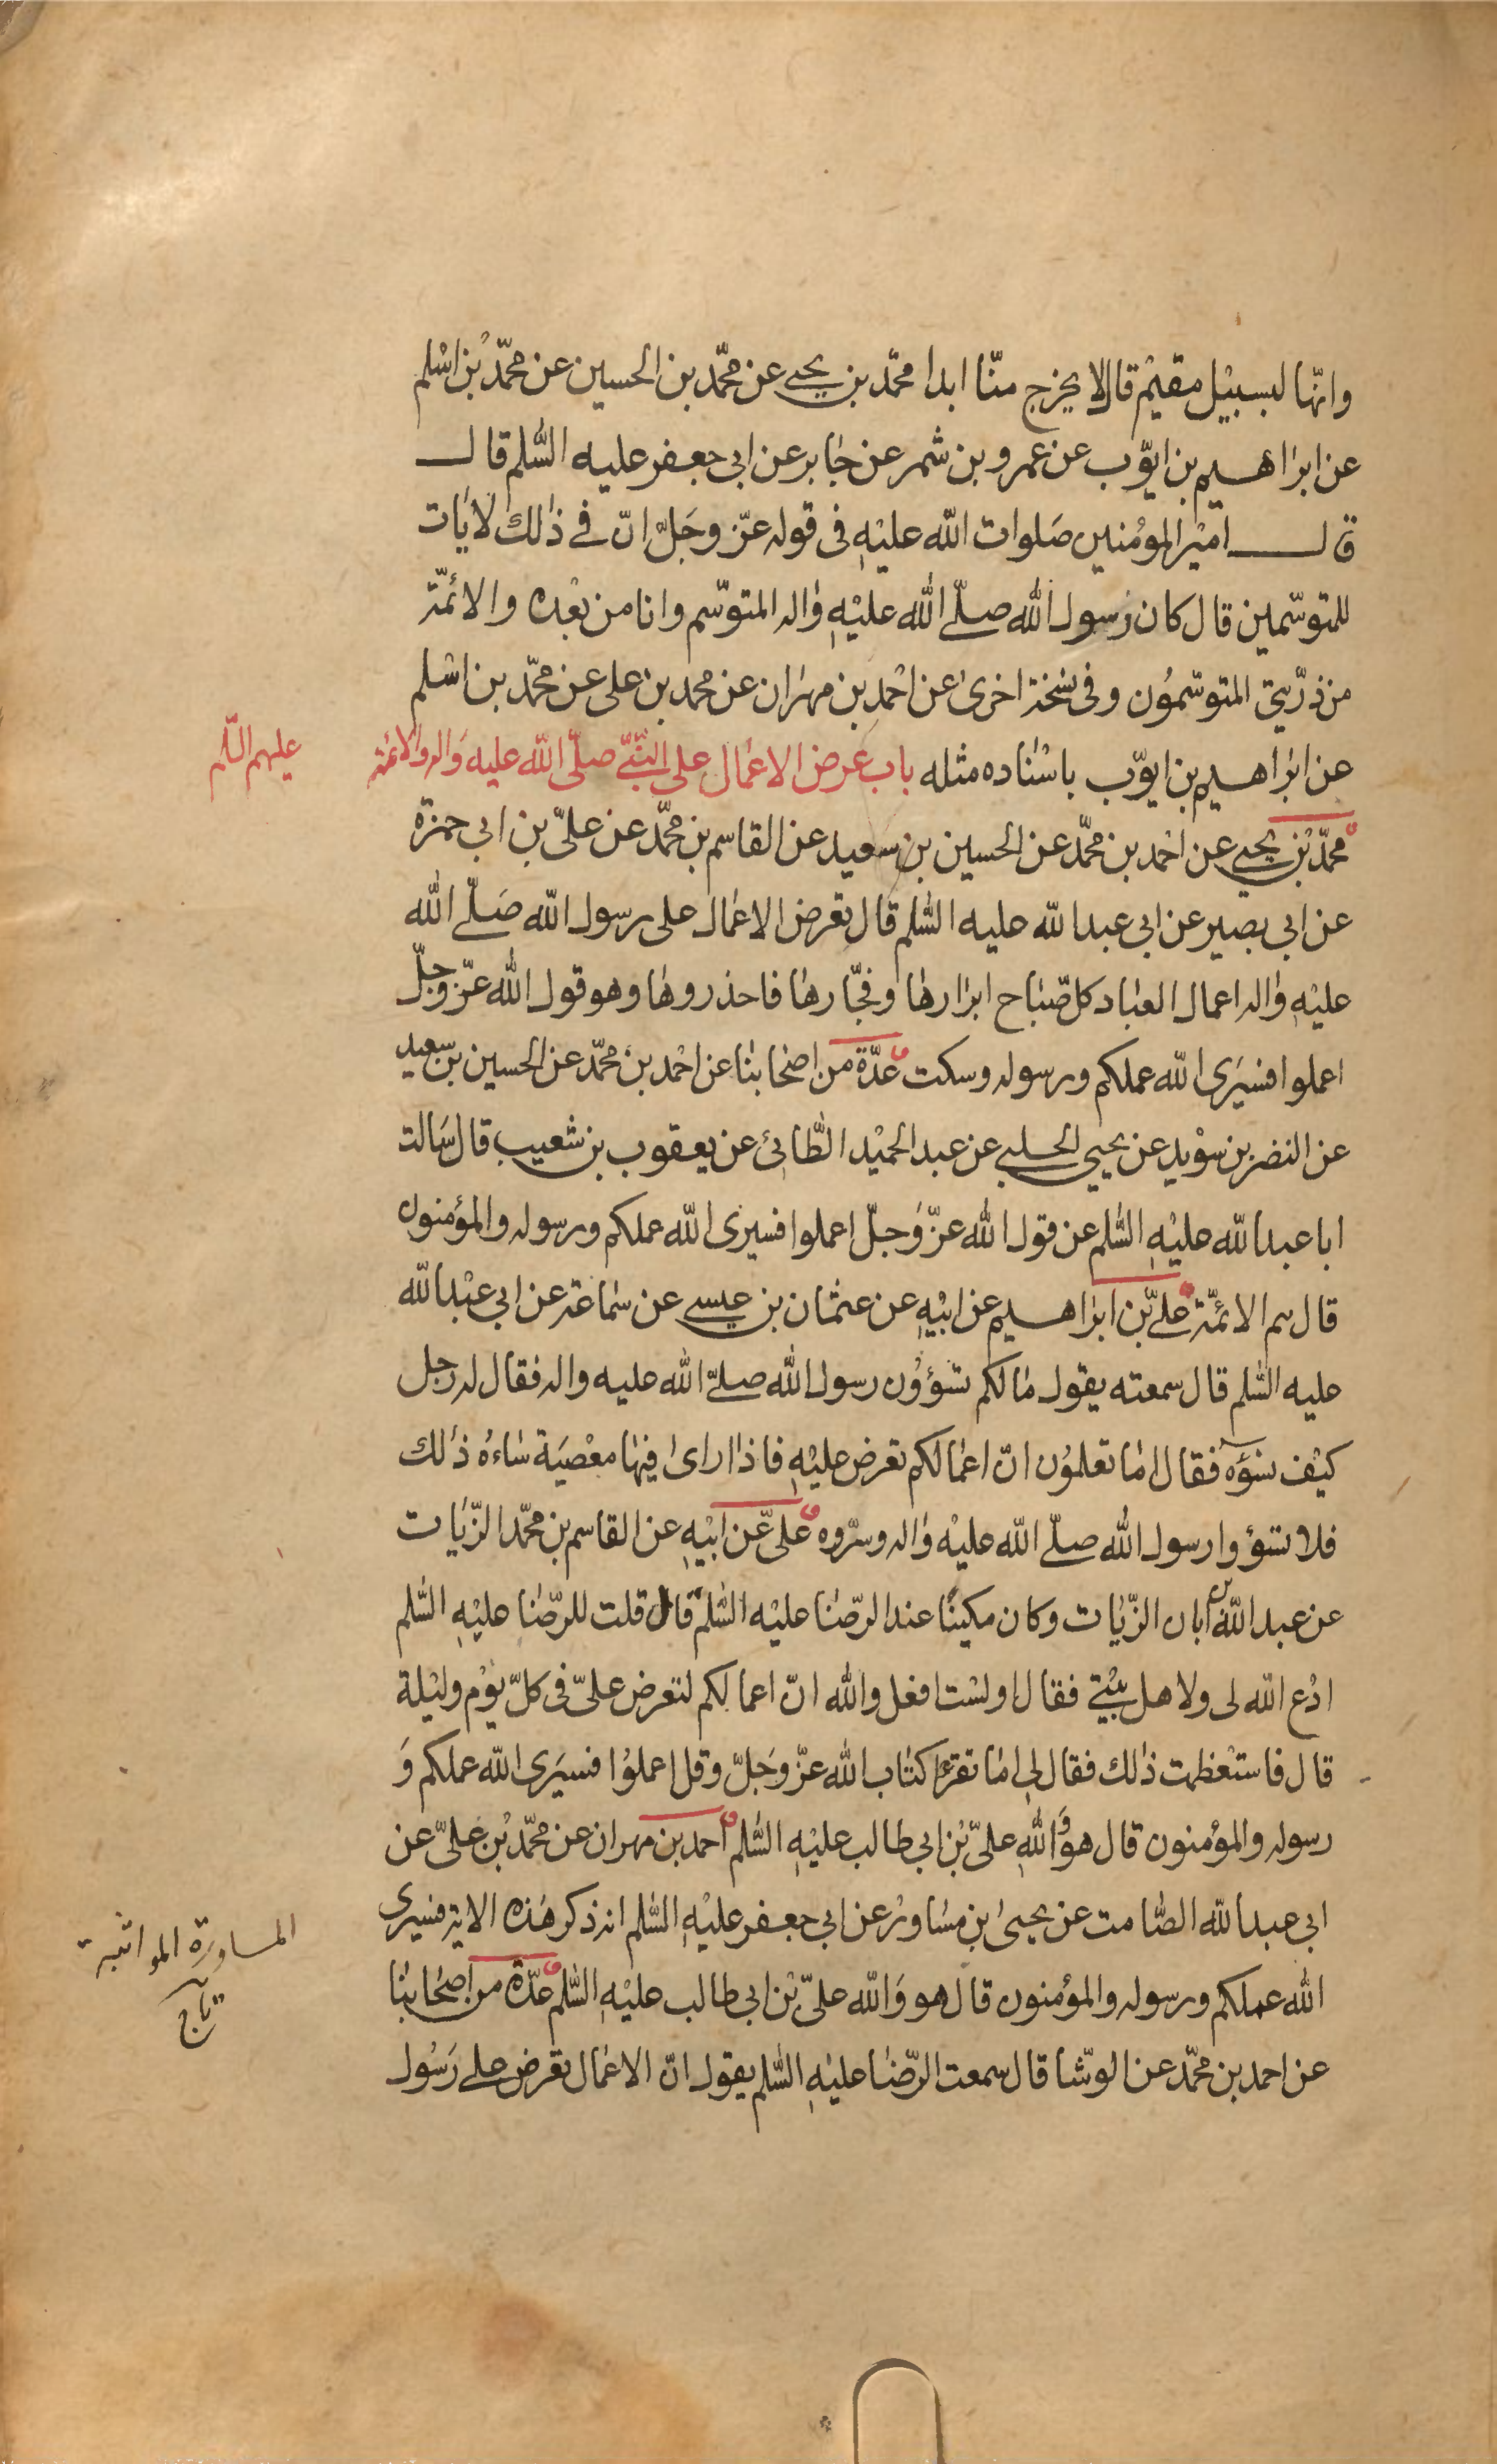 وانّها لبسبيل مقيم قال لا يخرج منّا ابدا محمّد بن يحيى عن محمّد بن الحسين عن محمّد بن اسلم
عن ابراهيم بن ايوّب عن عمرو بن شمر عن جابر عن ابى جعفر عليه السّلم قال
قال امير المومنين صلوات الله عليه فى قوله عزّ وجلّ انّ فى ذلك لآيات
للمتوسّمين قال كان رسول الله صلّى الله عليه واله المتوسّم وانا من بعده والائمّة
من ذرّيتى المتوسّمون وفى نسخة اخرى عن احمد بن مهران عن محمد بن على عن محمّد بن اسلم
عن ابراهيم بن ايوّب باسناده مثله باب عرض الاعمال على النّبىّ صلّى الله عليه واله والائمة
عليهم السّلم
محمّد بن يحيى عن احمد بن محمّد عن الحسين بن سعيد عن القاسم بن محمّد عن علىّ بن ابى حمزة
عن ابى بصير عن ابى عبد الله عليه السّلم قال تعرض الاعمال على رسول الله صلّى الله
عليه واله اعمال العباد كلّ صباح ابرارها وفجّارها فاحذروها وهو قول الله عزّ وجلّ
اعملوا فسيرى الله عملكم ورسوله وسكت عدّة من اصحابنا عن احمد بن محمّد عن الحسين بن سعيد
عن النضر بن سويد عن يحيى الحلبى عن عبد الحميد الطّائى عن يعقوب بن شعيب قال سالت
ابا عبد الله عليه السّلم عن قول الله عزّ وجلّ اعملوا فسيرى الله عملكم ورسوله والمؤمنون
قال هم الائمّة علىّ بن ابراهيم عن ابيه عن عثمان بن عيسى عن سماعة عن ابى عبد الله
عليه السّلم قال سمعته يقول ما لكم تسؤون رسول الله صلّى الله عليه واله فقال له رجل
كيف نسؤه فقال اما تعلمون انّ اعمالكم تعرض عليه فاذا راى فيها معصية ساءه ذلك
فلا تسؤوا رسول الله صلّى الله عليه واله وسرّوه علىّ عن ابيه عن القاسم بن محمّد الزّيات
عن عبد الله بن ابان الزّيات وكان مكينًا عند الرّضا عليه السّلم قال قلت للرّضا عليه السّلم
ادع الله لى ولاهل بيتى فقال اولست افعل والله انّ اعمالكم لتعرض علىّ فى كلّ يوم وليلة
قال فاستعظمت ذلك فقال لى اما تقرء كتاب الله عزّ وجلّ وقل اعملوا فسيرى الله عملكم و
رسوله والمؤمنون قال هو والله علىّ بن ابى طالب عليه السّلم احمد بن مهران عن محمّد بن علىّ عن
ابى عبد الله الصّامت عن يحيى بن مساور عن ابى جعفر عليه السّلم انه ذكر هذه الاية فسيرى
المساورة المواثبة
تاج
الله عملكم ورسوله والمؤمنون قال هو والله علىّ بن ابى طالب عليه السّلم عدّة من اصحابنا
عن احمد بن محمّد عن الوشّا قال سمعت الرّضا عليه السّلم يقول انّ الاعمال تعرض على رسول